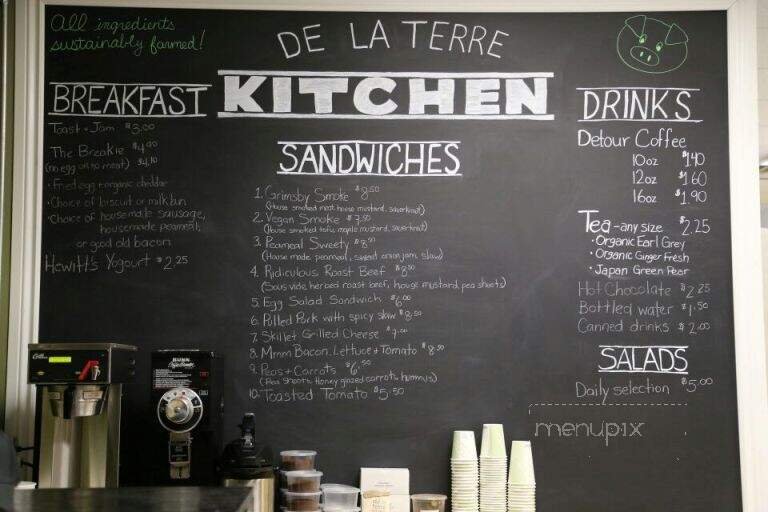 All ingredients
sustainably farmed!
DE LA TERRE
KITCHEN
BREAKFAST
Toast + Jam $3.00
The Breakie $4.90
(no egg or no meat) $4.10
• Fried egg + organic cheddar
• Choice of biscuit or milk bun
• Choice of housemade sausage,
housemade peameal,
or good old bacon
Hewitt's Yogourt $2.25
SANDWICHES
1. Grimsby Smoke $8.50
(House smoked meat, house mustard, sauerkraut)
2. Vegan Smoke $7.50
(House smoked tofu, maple mustard, sauerkraut)
3. Peameal Sweety $8.50
(House made peameal, sweet onion jam, slaw)
4. Ridiculous Roast Beef $8.50
(Sous vide herbed roast beef, house mustard, pea shoots)
5. Egg Salad Sandwich $6.00
6. Pulled Pork with spicy slaw $8.50
7. Skillet Grilled Cheese $7.00
8. Mmm Bacon, Lettuce + Tomato $8.50
9. Peas + Carrots $6.50
(Pea shoots, honey glazed carrots, hummus)
10. Toasted Tomato $5.50
DRINKS
Detour Coffee
10oz $1.40
12oz $1.60
16oz $1.90
Tea - any size $2.25
• Organic Earl Grey
• Organic Ginger Fresh
• Japan Green Pear
Hot Chocolate $2.25
Bottled water $1.50
Canned drinks $2.00
SALADS
Daily selection $5.00
menupix
BUNN